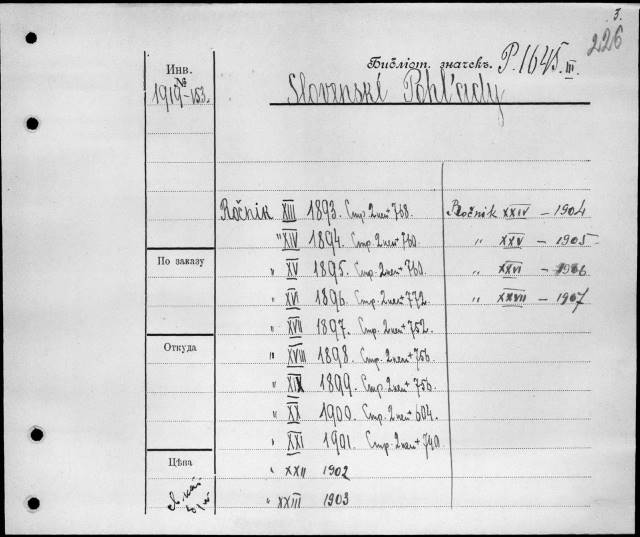 3.
226
Инв. №
1919-153.
Библіот. значекъ. P. 1645. III
Slovenské Pohl'ady
Ročnik XIII 1893. Стр. 2 нен + 768.
" XIV 1894. Стр. 2 нен + 760.
" XV 1895. Стр. 2 нен + 760.
" XVI 1896. Стр. 2 нен + 772.
" XVII 1897. Стр. 2 нен + 752.
" XVIII 1898. Стр. 2 нен + 756.
" XIX 1899. Стр. 2 нен + 756.
" XX 1900. Стр. 2 нен + 604.
" XXI 1901. Стр. 2 нен + 740.
" XXII 1902
" XXIII 1903
Ročnik XXIV - 1904
" XXV - 1905
" XXVI - 1906
" XXVII - 1907
По заказу
Откуда
Цѣна